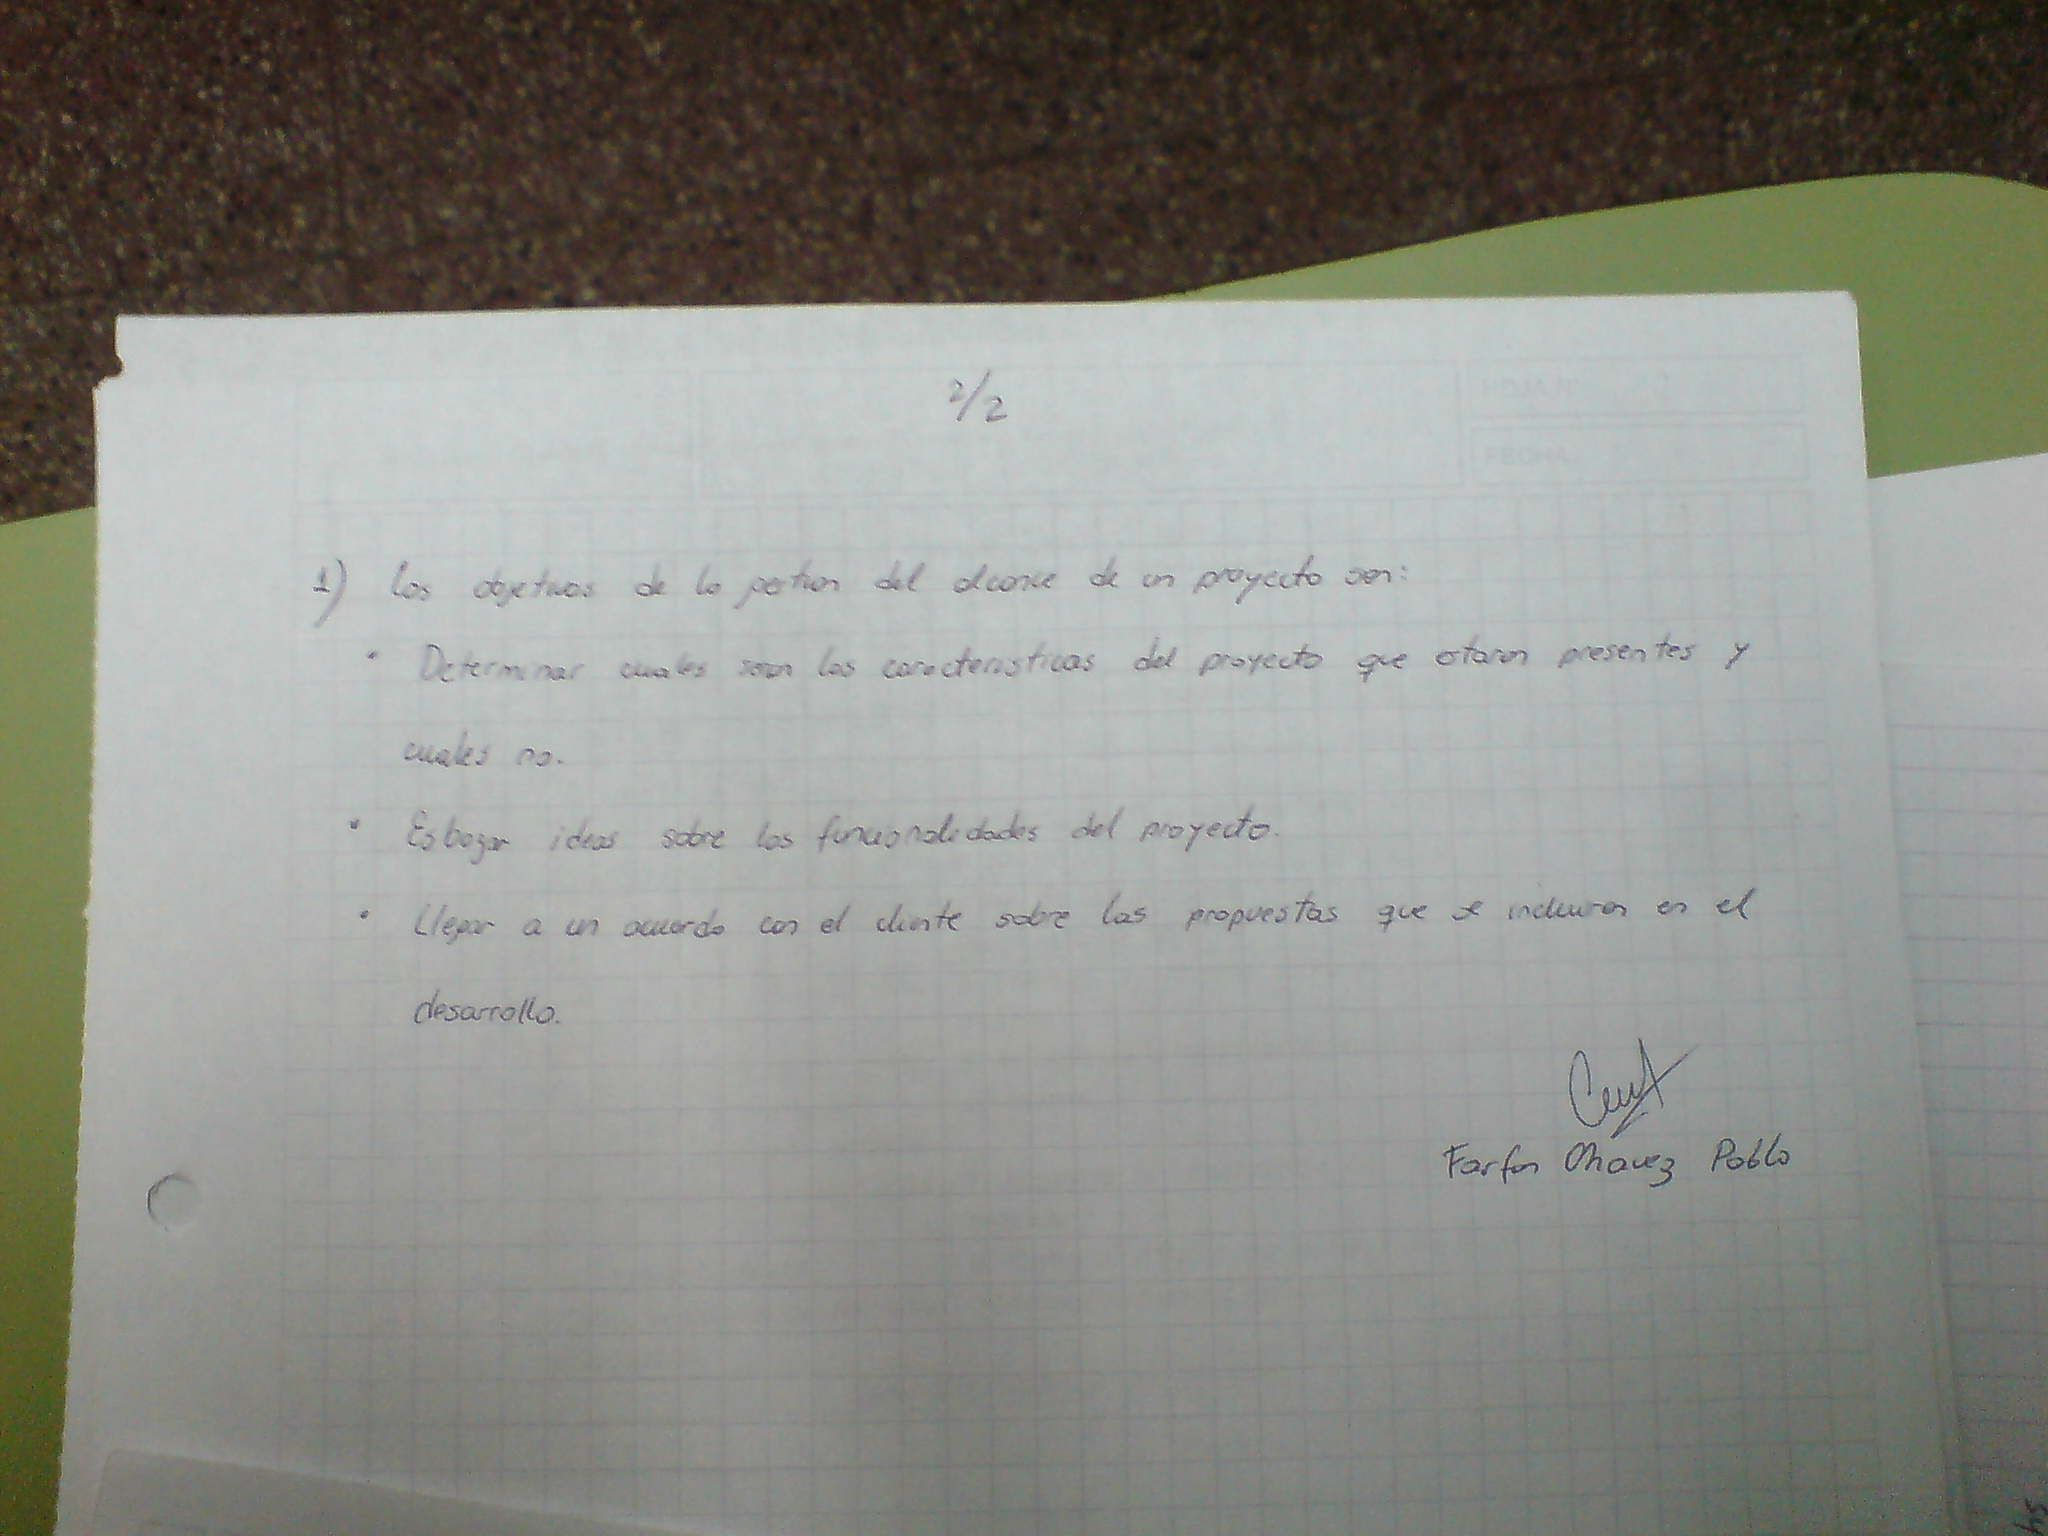 2/2
1) Los objetivos de la gestion del alcance de un proyecto son:
• Determinar cuales seran las caracteristicas del proyecto que estaran presentes y
cuales no.
• Esbozar ideas sobre las funcionalidades del proyecto.
• Llegar a un acuerdo con el cliente sobre las propuestas que se incluiran en el
desarrollo.
Farfan Chavez Pablo